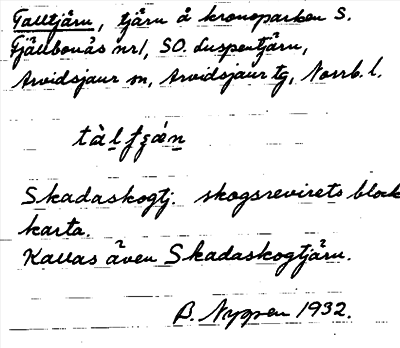 Talltjärn, tjärn å kronoparken S.
Fjällbonäs nr 1, SO. Luspentjärn,
Arvidsjaur sn, Arvidsjaur tg, Norrb. l.
Skadaskogtj. skogsrevirets block
karta.
Kallas även Skadaskogtjärn.
B. Nygren 1932.